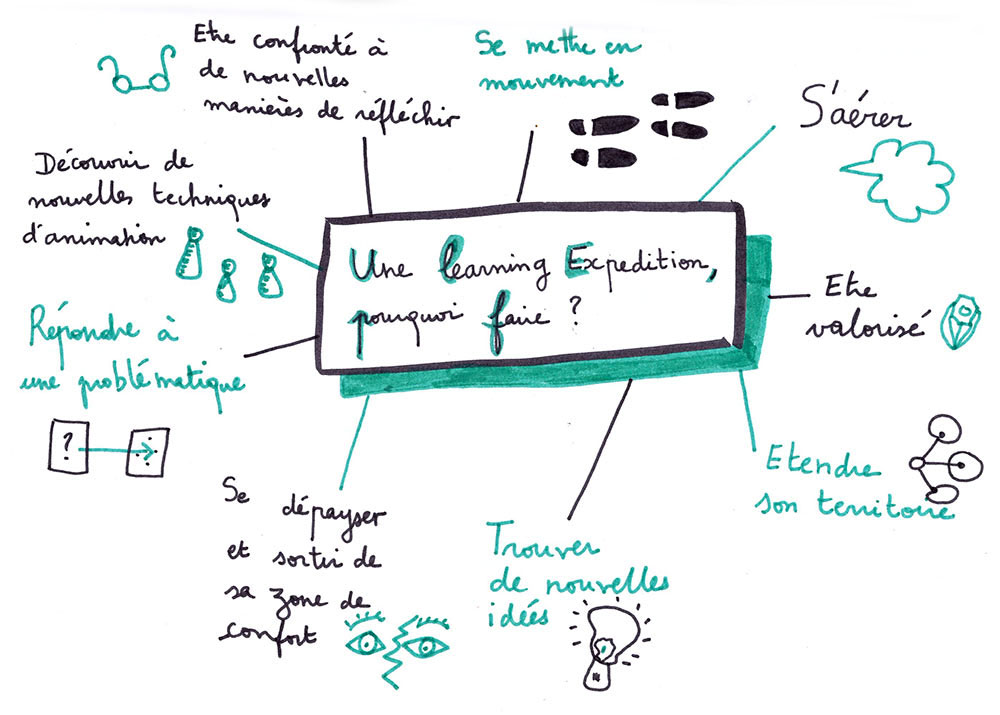 Une learning Expedition,
pourquoi faire ?
Etre confronté à
de nouvelles
manières de réfléchir
Se mettre en
mouvement
S'aérer
Etre
valorisé
Etendre
son territoire
Trouver
de nouvelles
idées
Se dépayser
et sortir de
sa zone de
confort
Répondre à
une problématique
?
Découvrir de
nouvelles techniques
d'animation